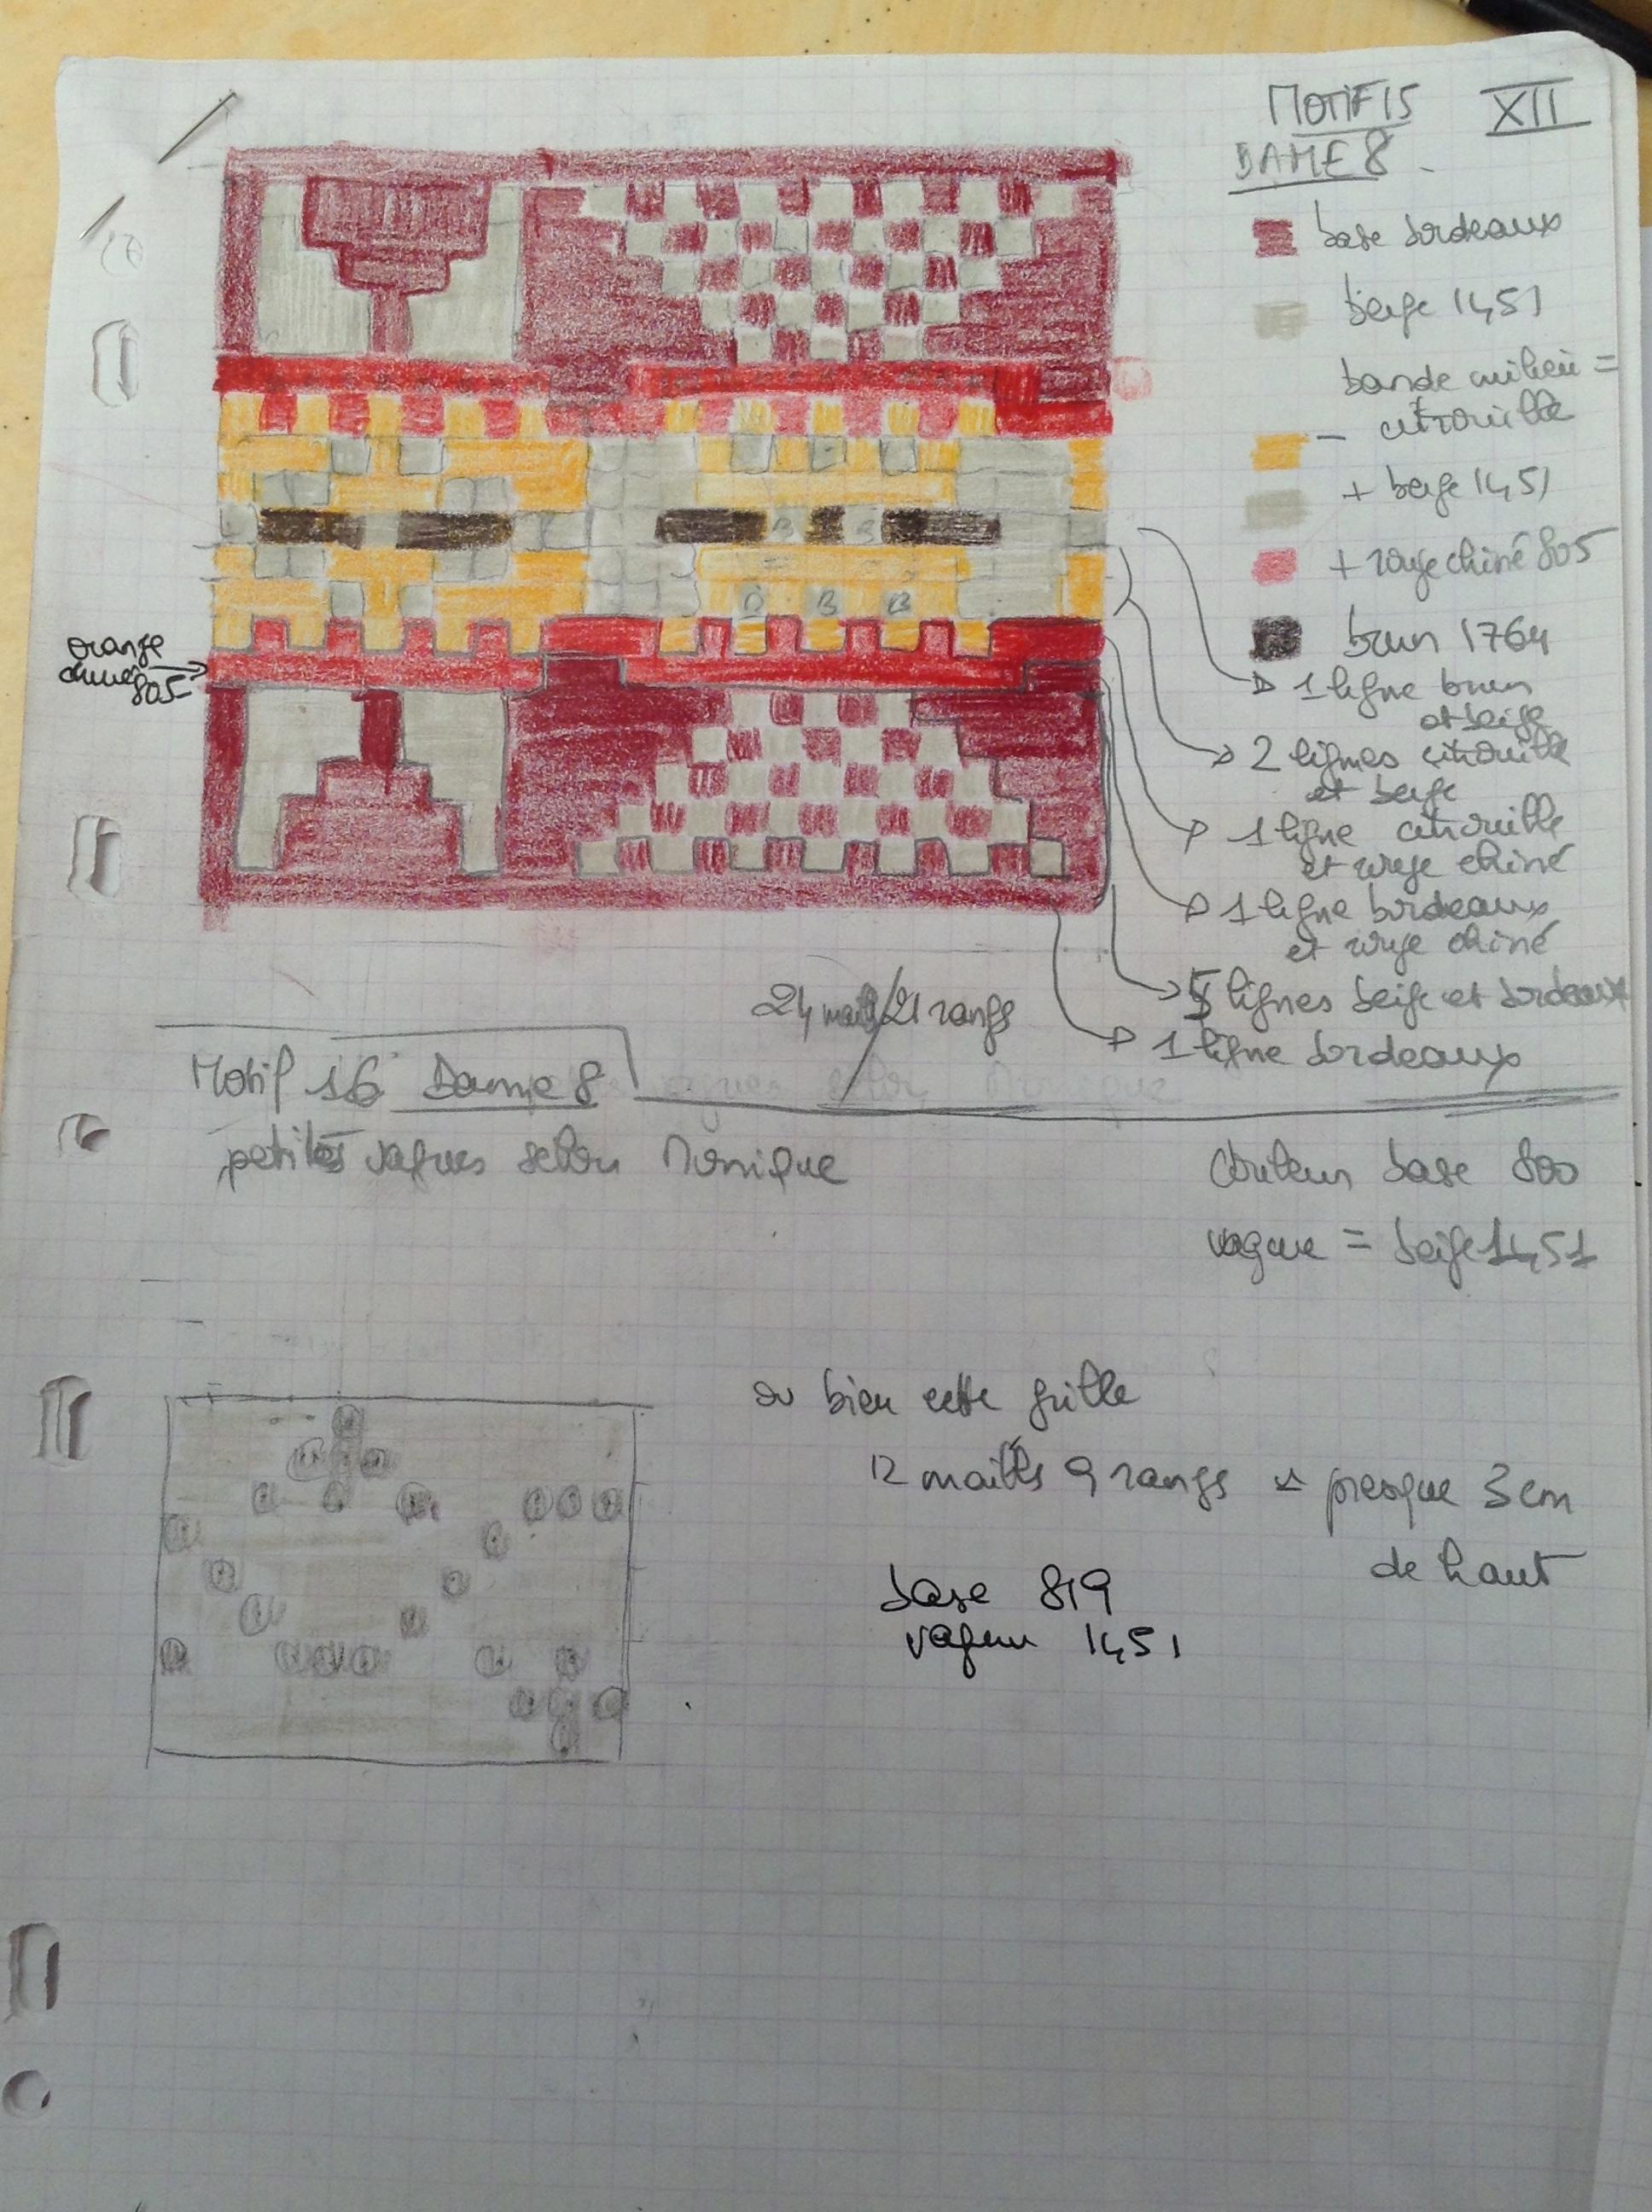 MOTIF 15 XII
DAME 8
base bordeaux
beige 1451
bande milieu =
- citrouille
+ beige 1451
+ rouge chiné 805
brun 1764
orange
chiné
805
B B
B B
→ 1 ligne brun
et beige
→ 2 lignes citrouille
et beige
→ 1 ligne citrouille
et rouge chiné
→ 1 ligne bordeaux
et rouge chiné
→ 5 lignes beige et bordeaux
→ 1 ligne bordeaux
24 mailles/21 rangs
Motif 16 Dame 8
petites vagues selon Monique
Couleur base 800
vague = beige 1451
ou bien cette grille
12 mailles 9 rangs presque 3 cm
de haut
base 819
vague 1451